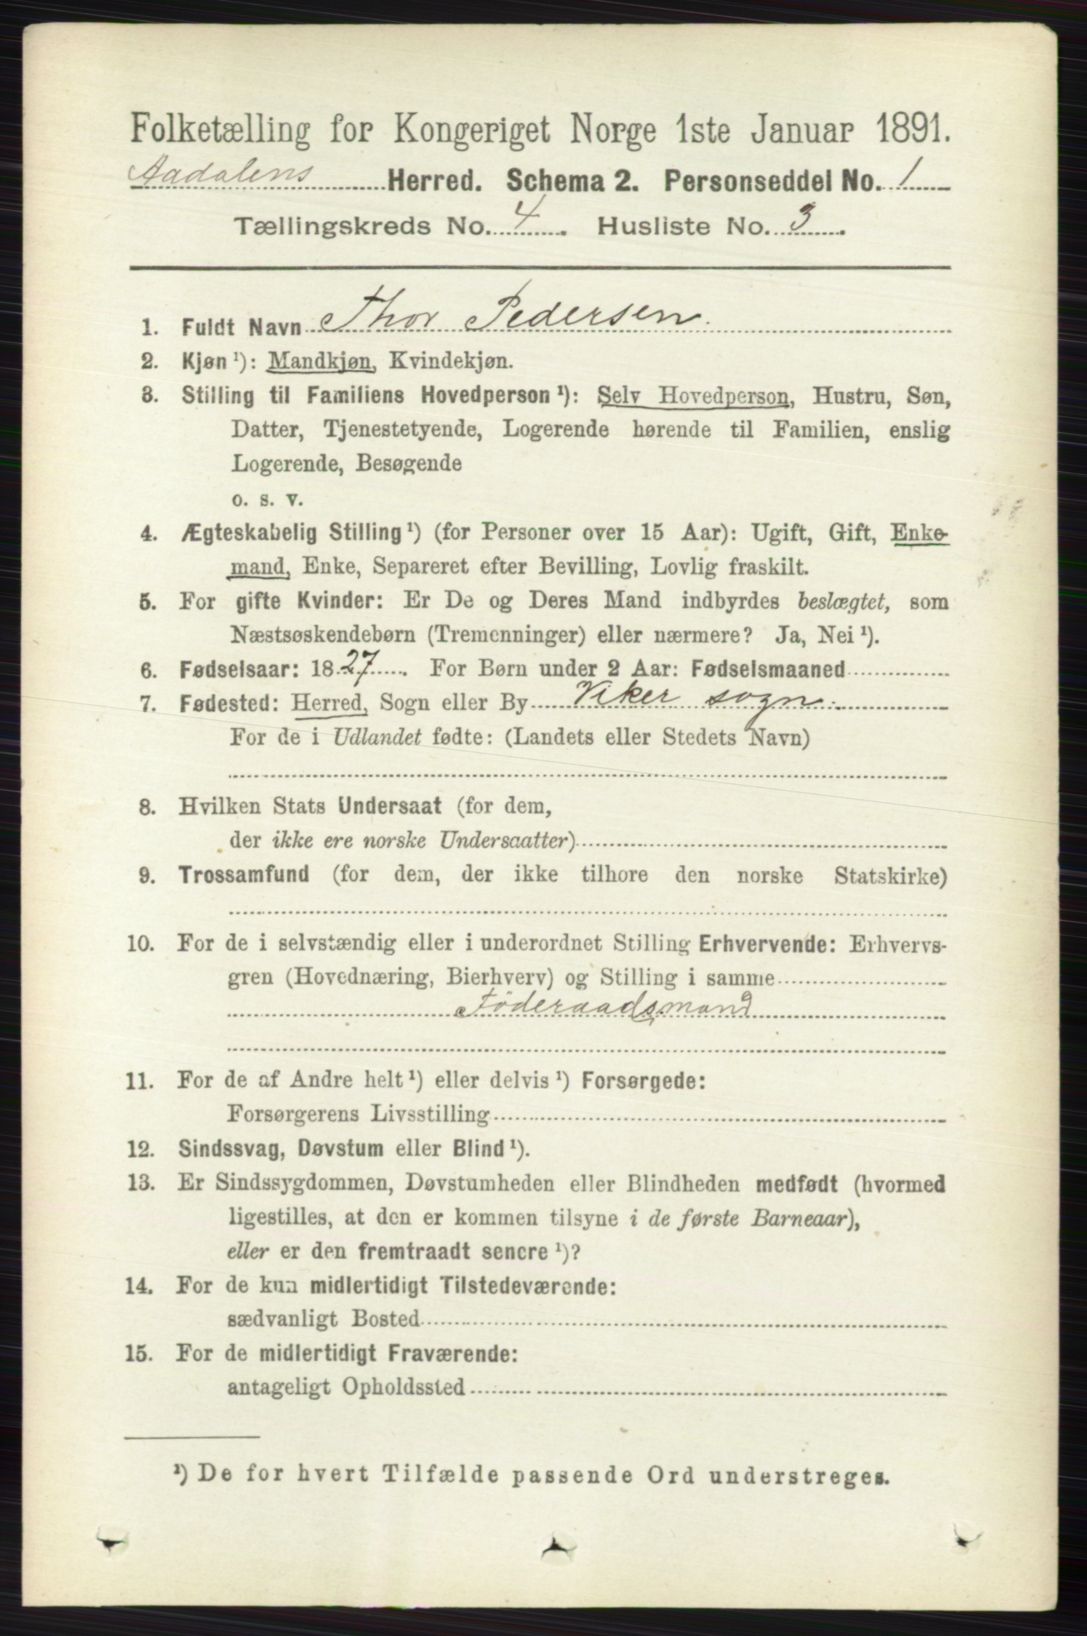 Folketælling for Kongeriget Norge 1ste Januar 1891.
Aadalens Herred. Schema 2. Personseddel No. 1
Tællingskreds No. 4. Husliste No. 3.
1. Fuldt Navn Thor Pedersen.
2. Kjøn ¹): Mandkjøn, Kvindekjøn.
3. Stilling til Familiens Hovedperson ¹): Selv Hovedperson, Hustru, Søn,
Datter, Tjenestetyende, Logerende hørende til Familien, enslig
Logerende, Besøgende
o. s. v.
4. Ægteskabelig Stilling ¹) (for Personer over 15 Aar): Ugift, Gift, Enke-
mand, Enke, Separeret efter Bevilling, Lovlig fraskilt.
5. For gifte Kvinder: Er De og Deres Mand indbyrdes beslægtet, som
Næstsøskendebørn (Tremenninger) eller nærmere? Ja, Nei ¹).
6. Fødselsaar: 1827. For Børn under 2 Aar: Fødselsmaaned
7. Fødested: Herred, Sogn eller By Viker sogn.
For de i Udlandet fødte: (Landets eller Stedets Navn)
8. Hvilken Stats Undersaat (for dem,
der ikke ere norske Undersaatter)
9. Trossamfund (for dem, der ikke tilhore den norske Statskirke)
10. For de i selvstændig eller i underordnet Stilling Erhvervende: Erhvervs-
gren (Hovednæring, Bierhverv) og Stilling i samme
Føderaadsmand
11. For de af Andre helt ¹) eller delvis ¹) Forsørgede:
Forsørgerens Livsstilling
12. Sindssvag, Døvstum eller Blind ¹).
13. Er Sindssygdommen, Døvstumheden eller Blindheden medfødt (hvormed
ligestilles, at den er kommen tilsyne i de første Barneaar),
eller er den fremtraadt senere ¹)?
14. For de kun midlertidigt Tilstedeværende:
sædvanligt Bosted
15. For de midlertidigt Fraværende:
antageligt Opholdssted
¹) De for hvert Tilfælde passende Ord understreges.